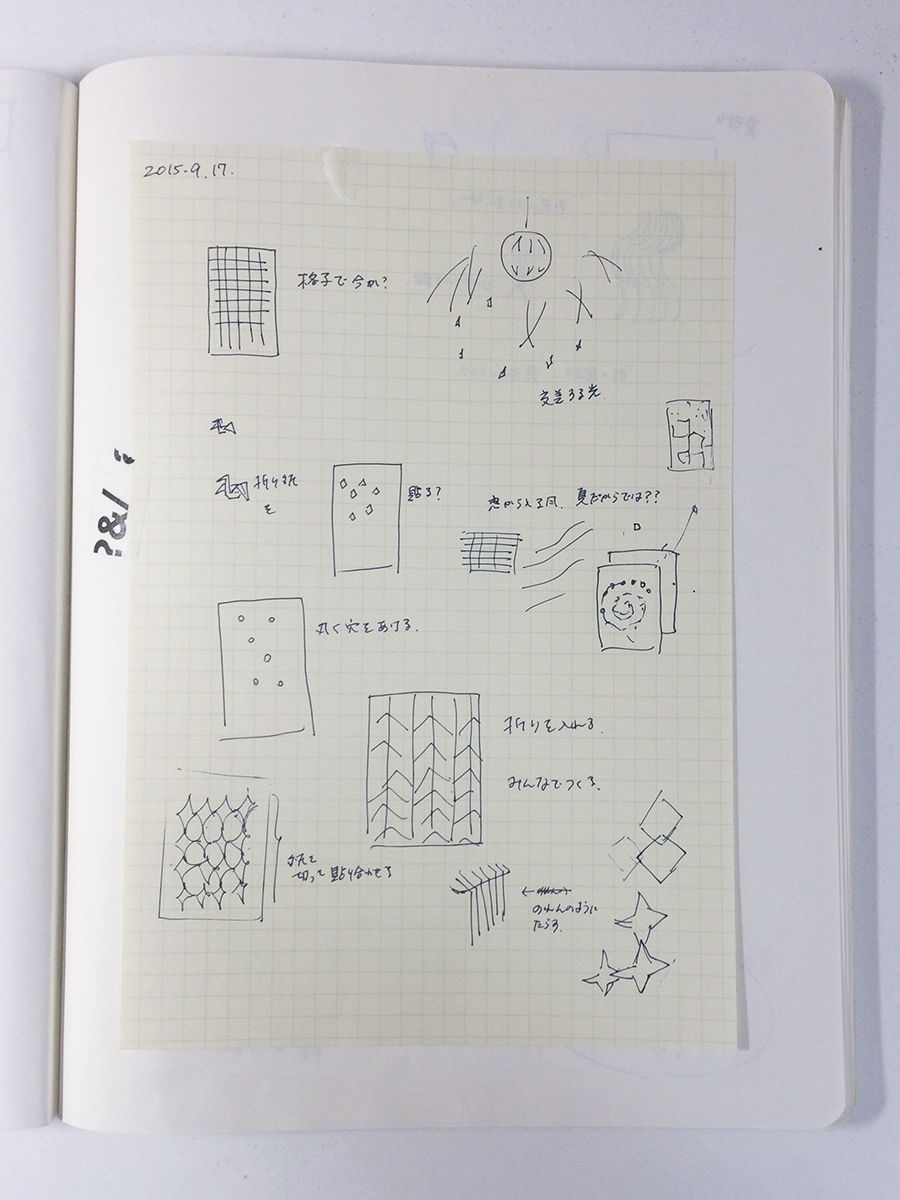 2015.9.17.
格子で分か?
交差する光
折り紙
を
貼る?
窓からみえる月 夏だからでは??
?&!
丸く穴をあける.
折りを入れる.
みんなでつくる.
紙を
切って貼り合わせる
のれんのように
たらす.